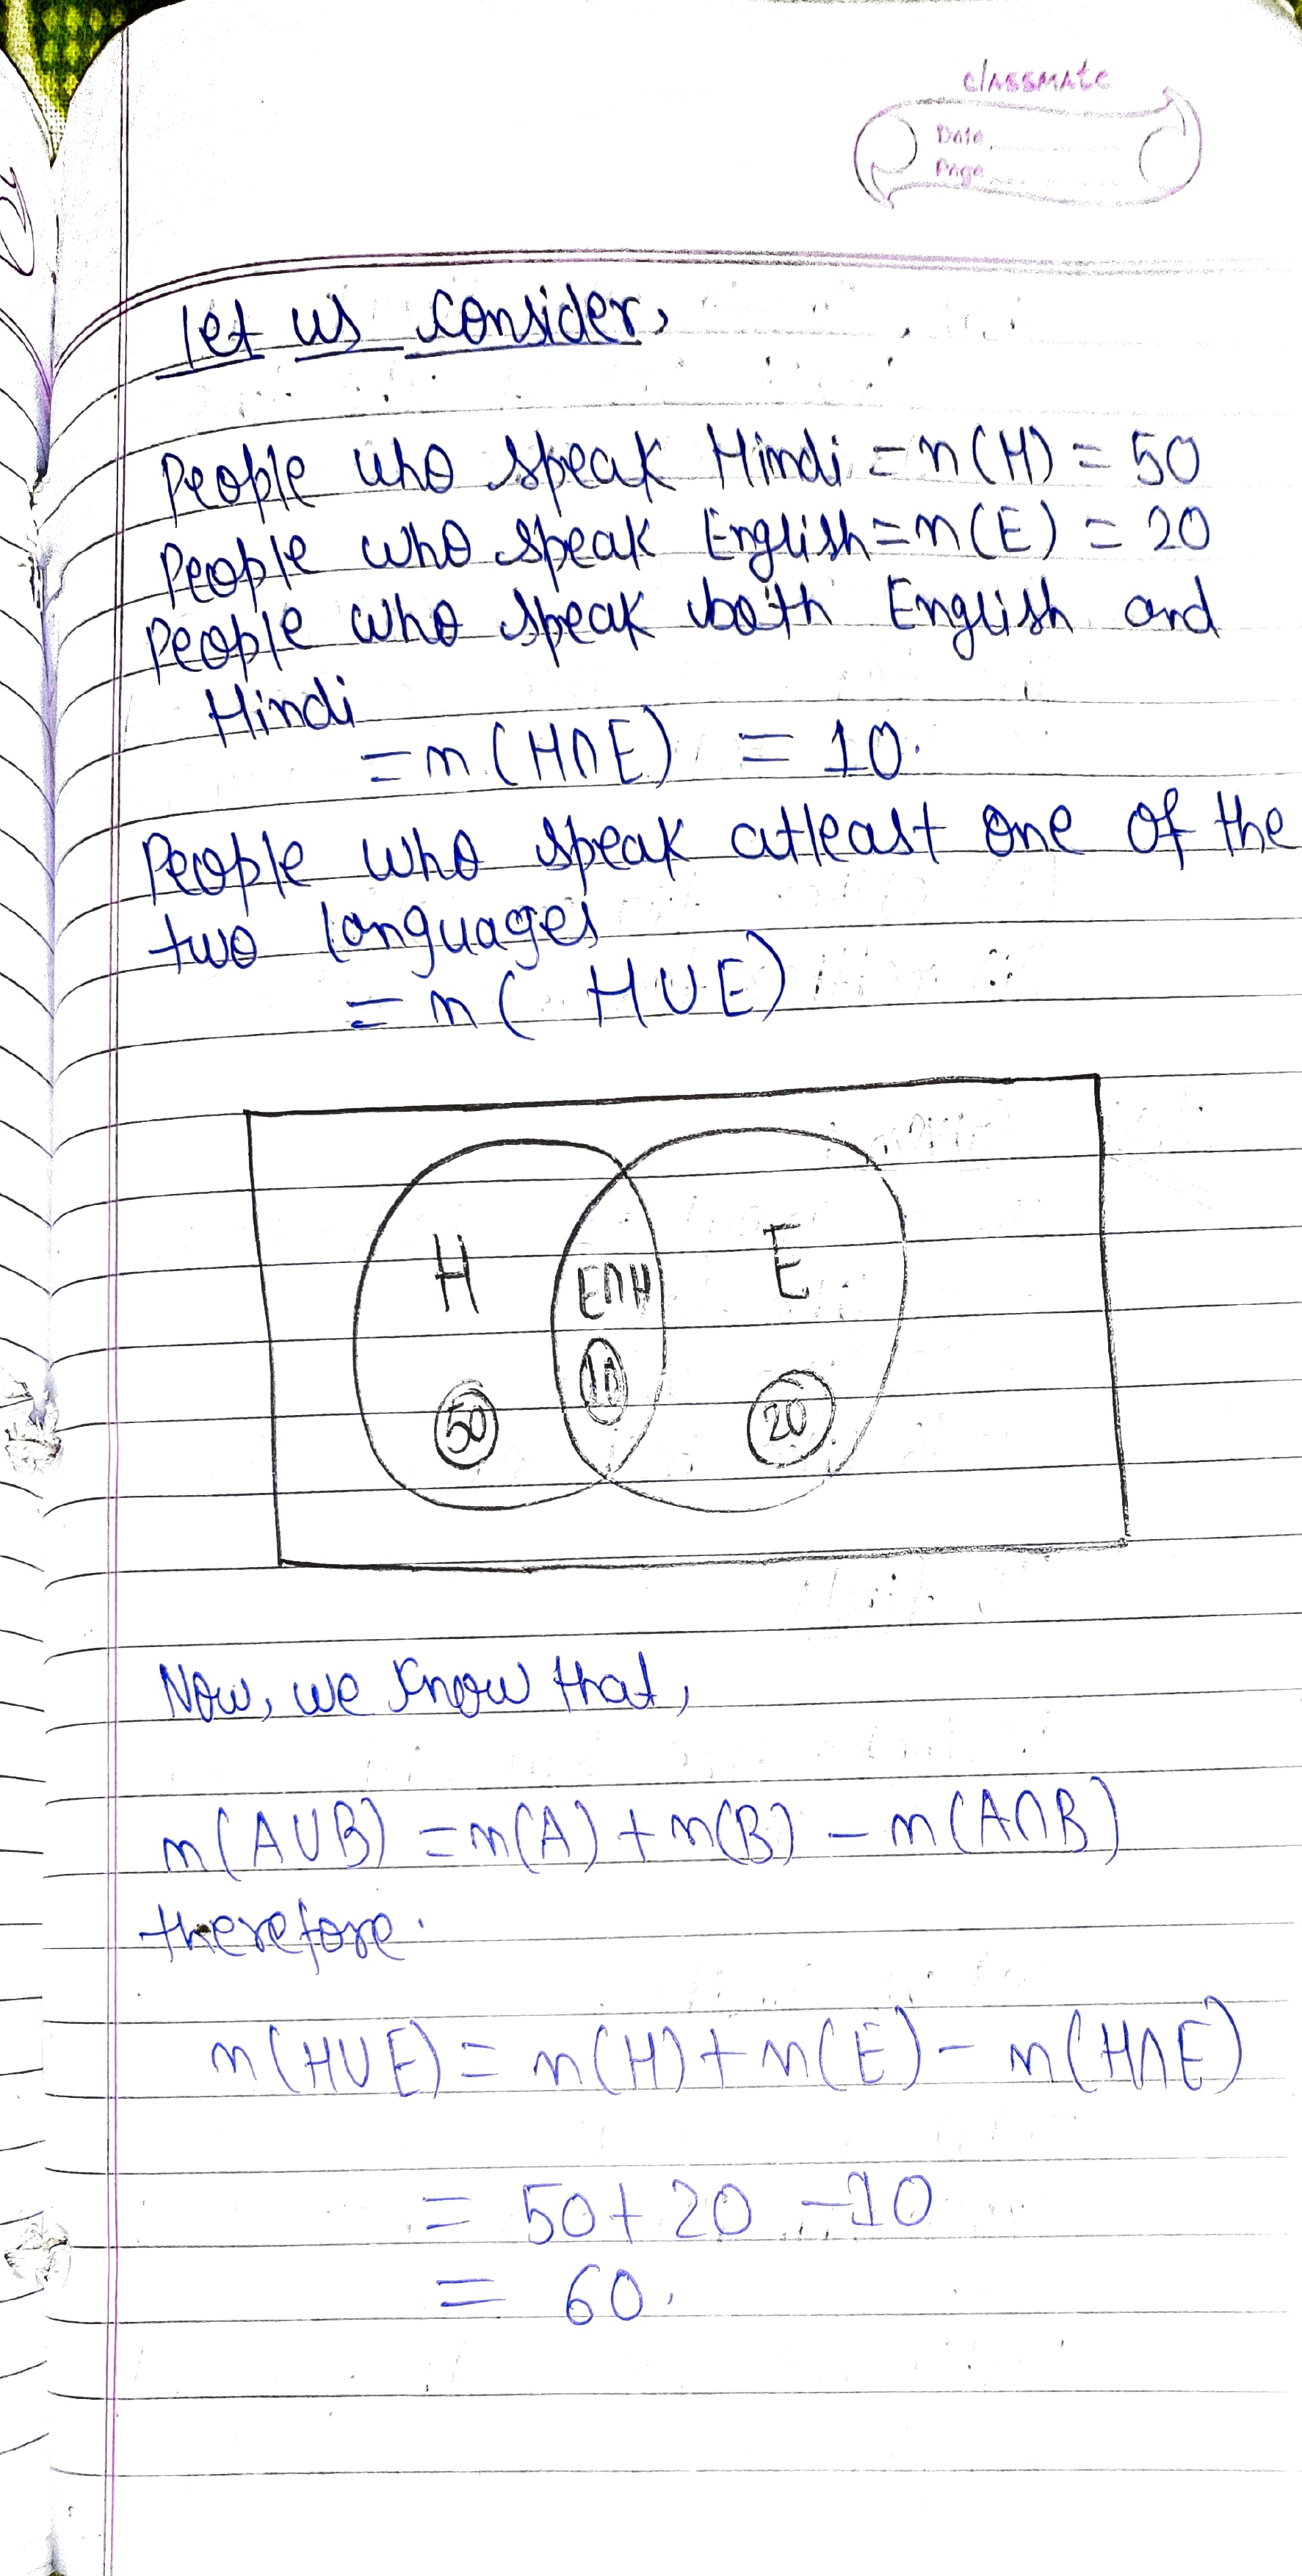 classmate
Date
Page
let us consider,
People who speak Hindi = n(H) = 50
People who speak English = n(E) = 20
People who speak both English and
Hindi
= n(H∩E) = 10.
People who speak atleast one of the
two languages
= n( H∪E)
H
E
E∩H
10
50
20
Now, we know that,
n(A∪B) = n(A) + n(B) - n(A∩B)
therefore.
n(H∪E) = n(H) + n(E) - n(H∩E)
= 50 + 20 - 10
= 60.